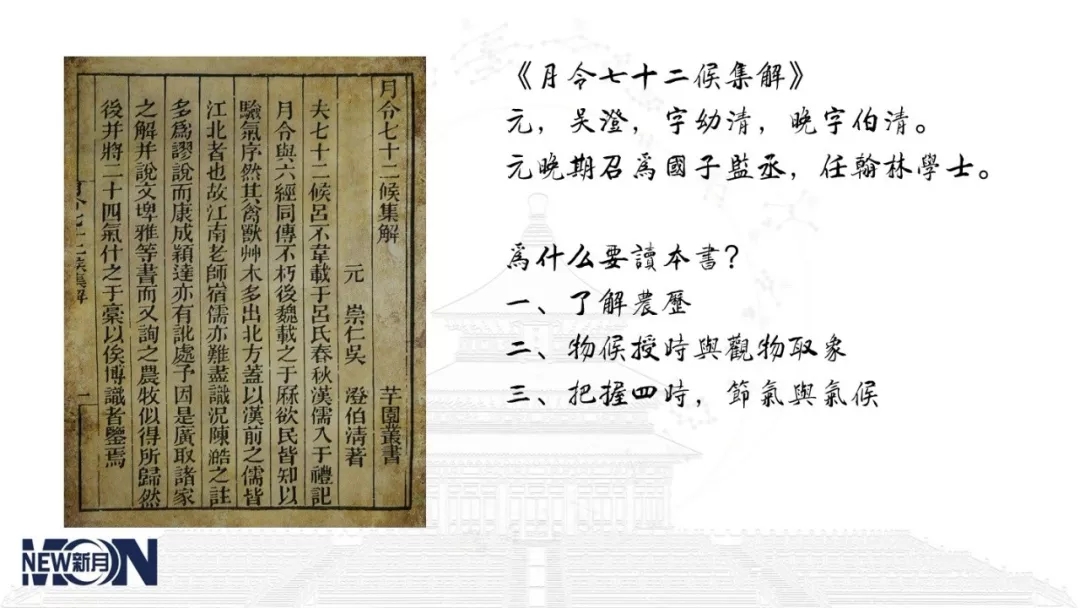 月令七十二候集解
元 崇仁吳 澄伯清著 芋園叢書
夫七十二候呂不韋載于呂氏春秋漢儒入于禮記
月令與六經同傳不朽後魏載之于厤欲民皆知以
驗氣序然其禽獸艸木多出北方蓋以漢前之儒皆
江北者也故江南老師宿儒亦難盡識況陳澔之註
多為謬說而康成穎達亦有訛處予因是廣取諸家
之解并說文埤雅等書而又詢之農牧似得所歸然
後并將二十四氣什之于稾以俟博識者鑒焉
《月令七十二候集解》
元，吳澄，字幼清，晚字伯清。
元晚期召爲國子監丞，任翰林學士。
爲什么要讀本書？
一、了解農歷
二、物候授時與觀物取象
三、把握四時，節氣與氣候
NEW新月
MOON